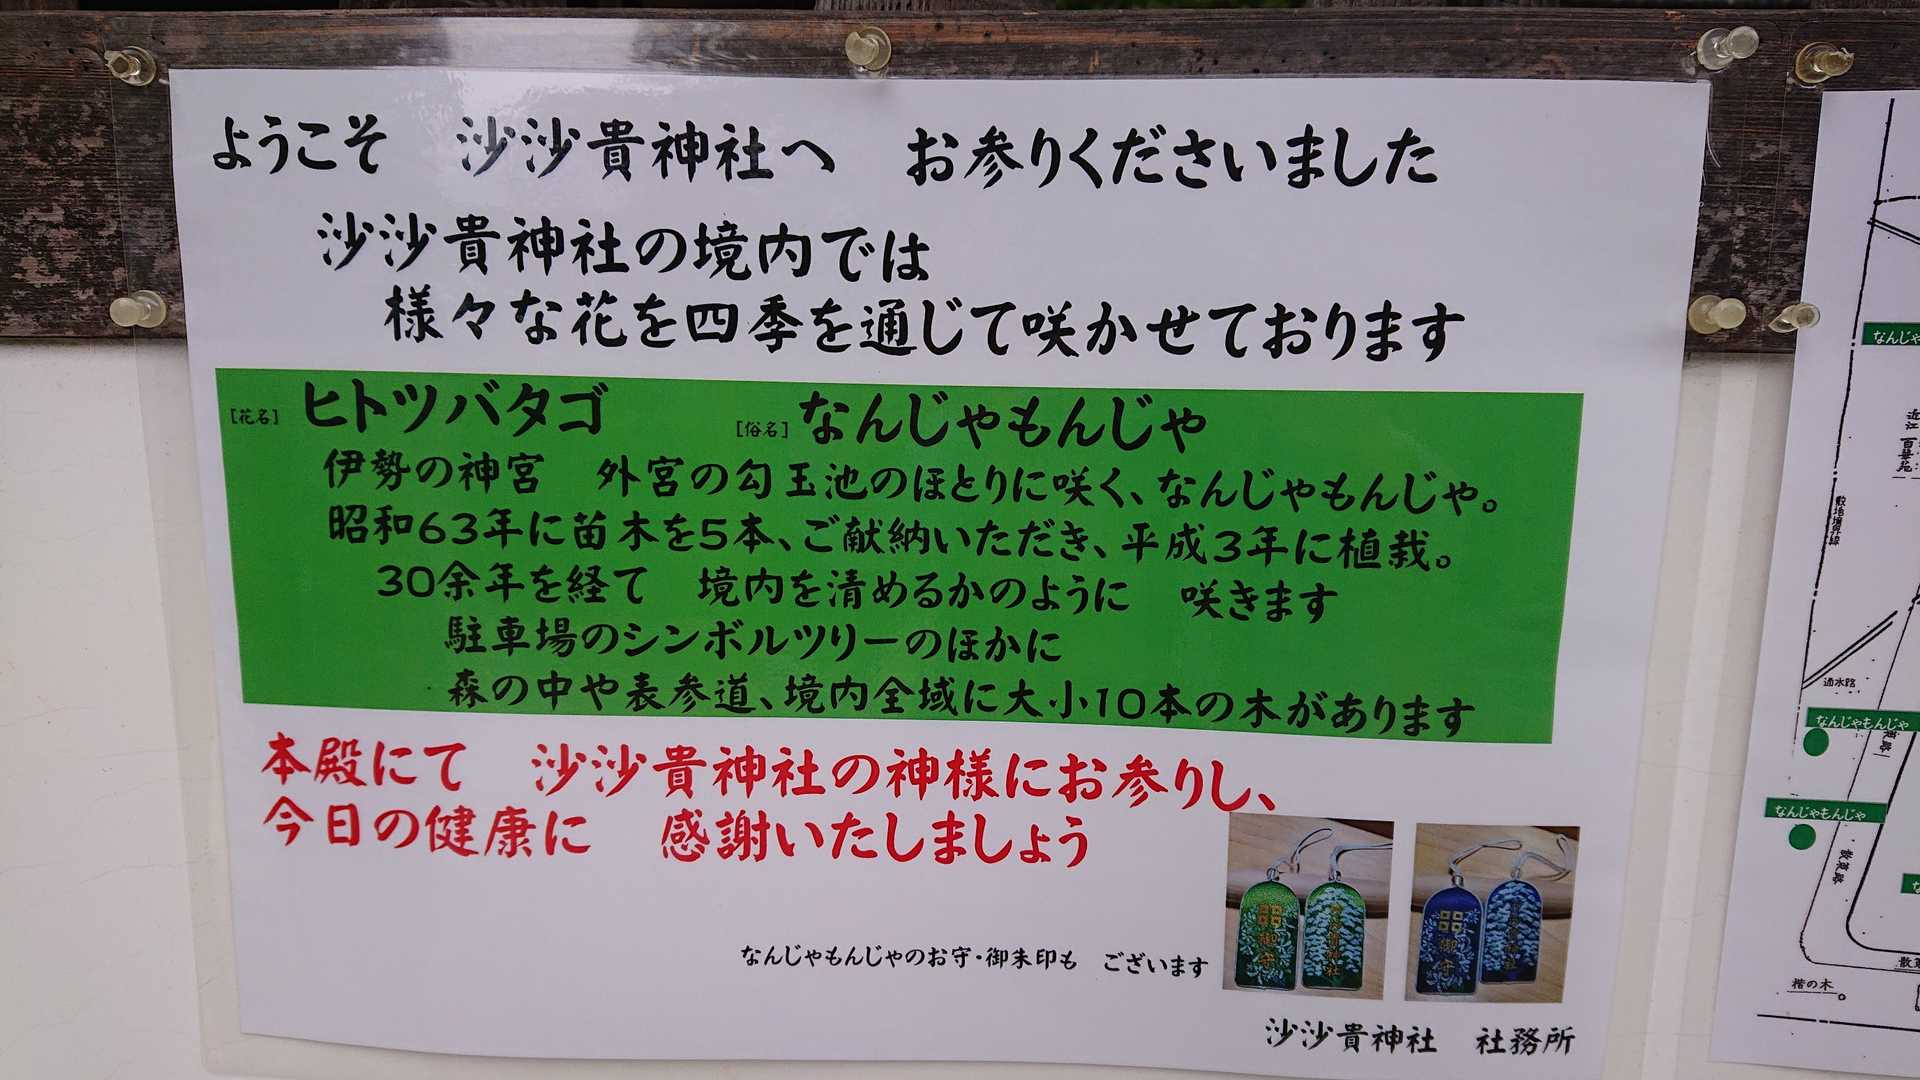 ようこそ　沙沙貴神社へ　お参りくださいました
沙沙貴神社の境内では
様々な花を四季を通じて咲かせております
[花名] ヒトツバタゴ　[俗名] なんじゃもんじゃ
伊勢の神宮　外宮の勾玉池のほとりに咲く、なんじゃもんじゃ。
昭和63年に苗木を5本、ご献納いただき、平成3年に植栽。
30余年を経て　境内を清めるかのように　咲きます
駐車場のシンボルツリーのほかに
森の中や表参道、境内全域に大小10本の木があります
本殿にて　沙沙貴神社の神様にお参りし、
今日の健康に　感謝いたしましょう
なんじゃもんじゃのお守・御朱印も　ございます
御守
沙沙貴神社
御守
沙沙貴神社　社務所
なんじゃ
近江
百華苑
敷地境界線
通水路
なんじゃもんじゃ
なんじゃもんじゃ
散策路
楷の木